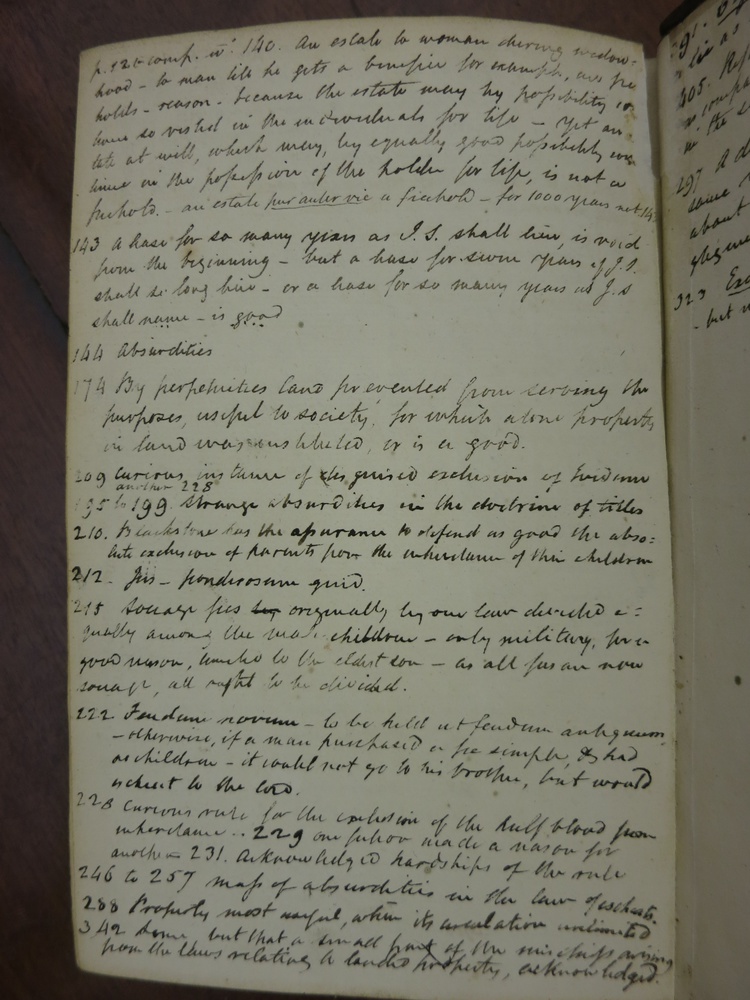 p. 126 comp. wt. 140. An estate to woman during widow-
hood - to man till he gets a benefice for example, are free
holds - reason - because the estate may by possibility
have so vested in the individuals for life - yet an
tate at will, which may, by equally good possibility
tinue in the possession of the holder for life, is not a
freehold. - an estate pur auter vie a freehold - for 1000 years not
143 A lease for so many years as J.S. shall live, is void
from the beginning - but a lease for seven years if J.S.
shall so long live - or a lease for so many years as J.S
shall name - is good
144 Absurdities
174 By perpetuities land prevented from serving the
purposes, useful to society, for which alone property
in land was established, or is a good.
209 Curious instance of disguised exclusion of Evidence
another 228
195 to 199. Strange absurdities in the doctrine of titles
210. Blackstone has the assurance to defend as good the abso-
lute exclusion of parents from the inheritance of their children
212 - Jus - ponderosum quid.
215 Socage fees originally by our law divided e-
qually among the male children - only military, for a
good reason, limited to the eldest son - as all fees are now
socage, all ought to be divided.
222 Feudum novum - to be held ut feudum antiquum
- otherwise, if a man purchased a fee simple, & had
no children - it could not go to his brother, but would
escheat to the lord.
228 Curious rule for the exclusion of the half blood from
inheritance .. 229 one fiction made a reason for
another 231. Acknowledged hardships of the rule
246 to 257 mass of absurdities in the law of escheats.
288 Property most useful, when its circulation unlimited
342 Some but that a small part of the mischiefs arising
from the laws relating to landed property, acknowledged.
291.
305.
297 A
same
about
323
- but